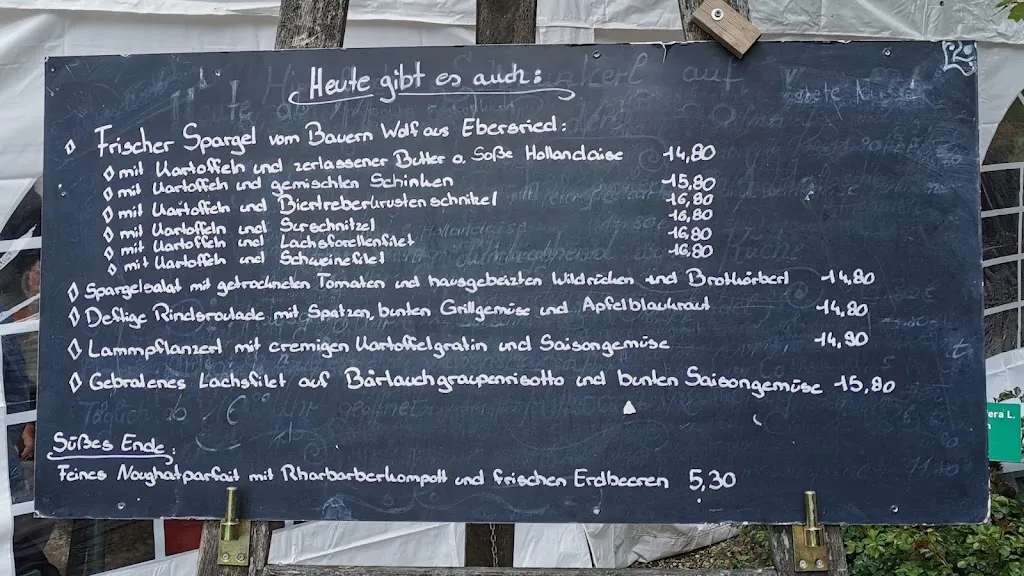 Heute gibt es auch:
Frischer Spargel vom Bauern Wolf aus Ebersried:
mit Kartoffeln und zerlassener Butter o. Soße Hollandaise 14,80
mit Kartoffeln und gemischten Schinken 15,80
mit Kartoffeln und Biertreberkrustenschnitzel 16,80
mit Kartoffeln und Surschnitzel 16,80
mit Kartoffeln und Lachsforellenfilet 16,80
mit Kartoffeln und Schweinefilet 16,80
Spargelsalat mit getrockneten Tomaten und hausgebeizten Wildrücken und Brotkörberl 14,80
Deftige Rindsroulade mit Spatzen, bunten Grillgemüse und Apfelblaukraut 14,80
Lammpflanzerl mit cremigen Kartoffelgratin und Saisongemüse 14,90
Gebratenes Lachsfilet auf Bärlauchgraupenrisotto und bunten Saisongemüse 15,80
Süßes Ende:
Feines Noughatparfait mit Rharbarberkompott und frischen Erdbeeren 5,30